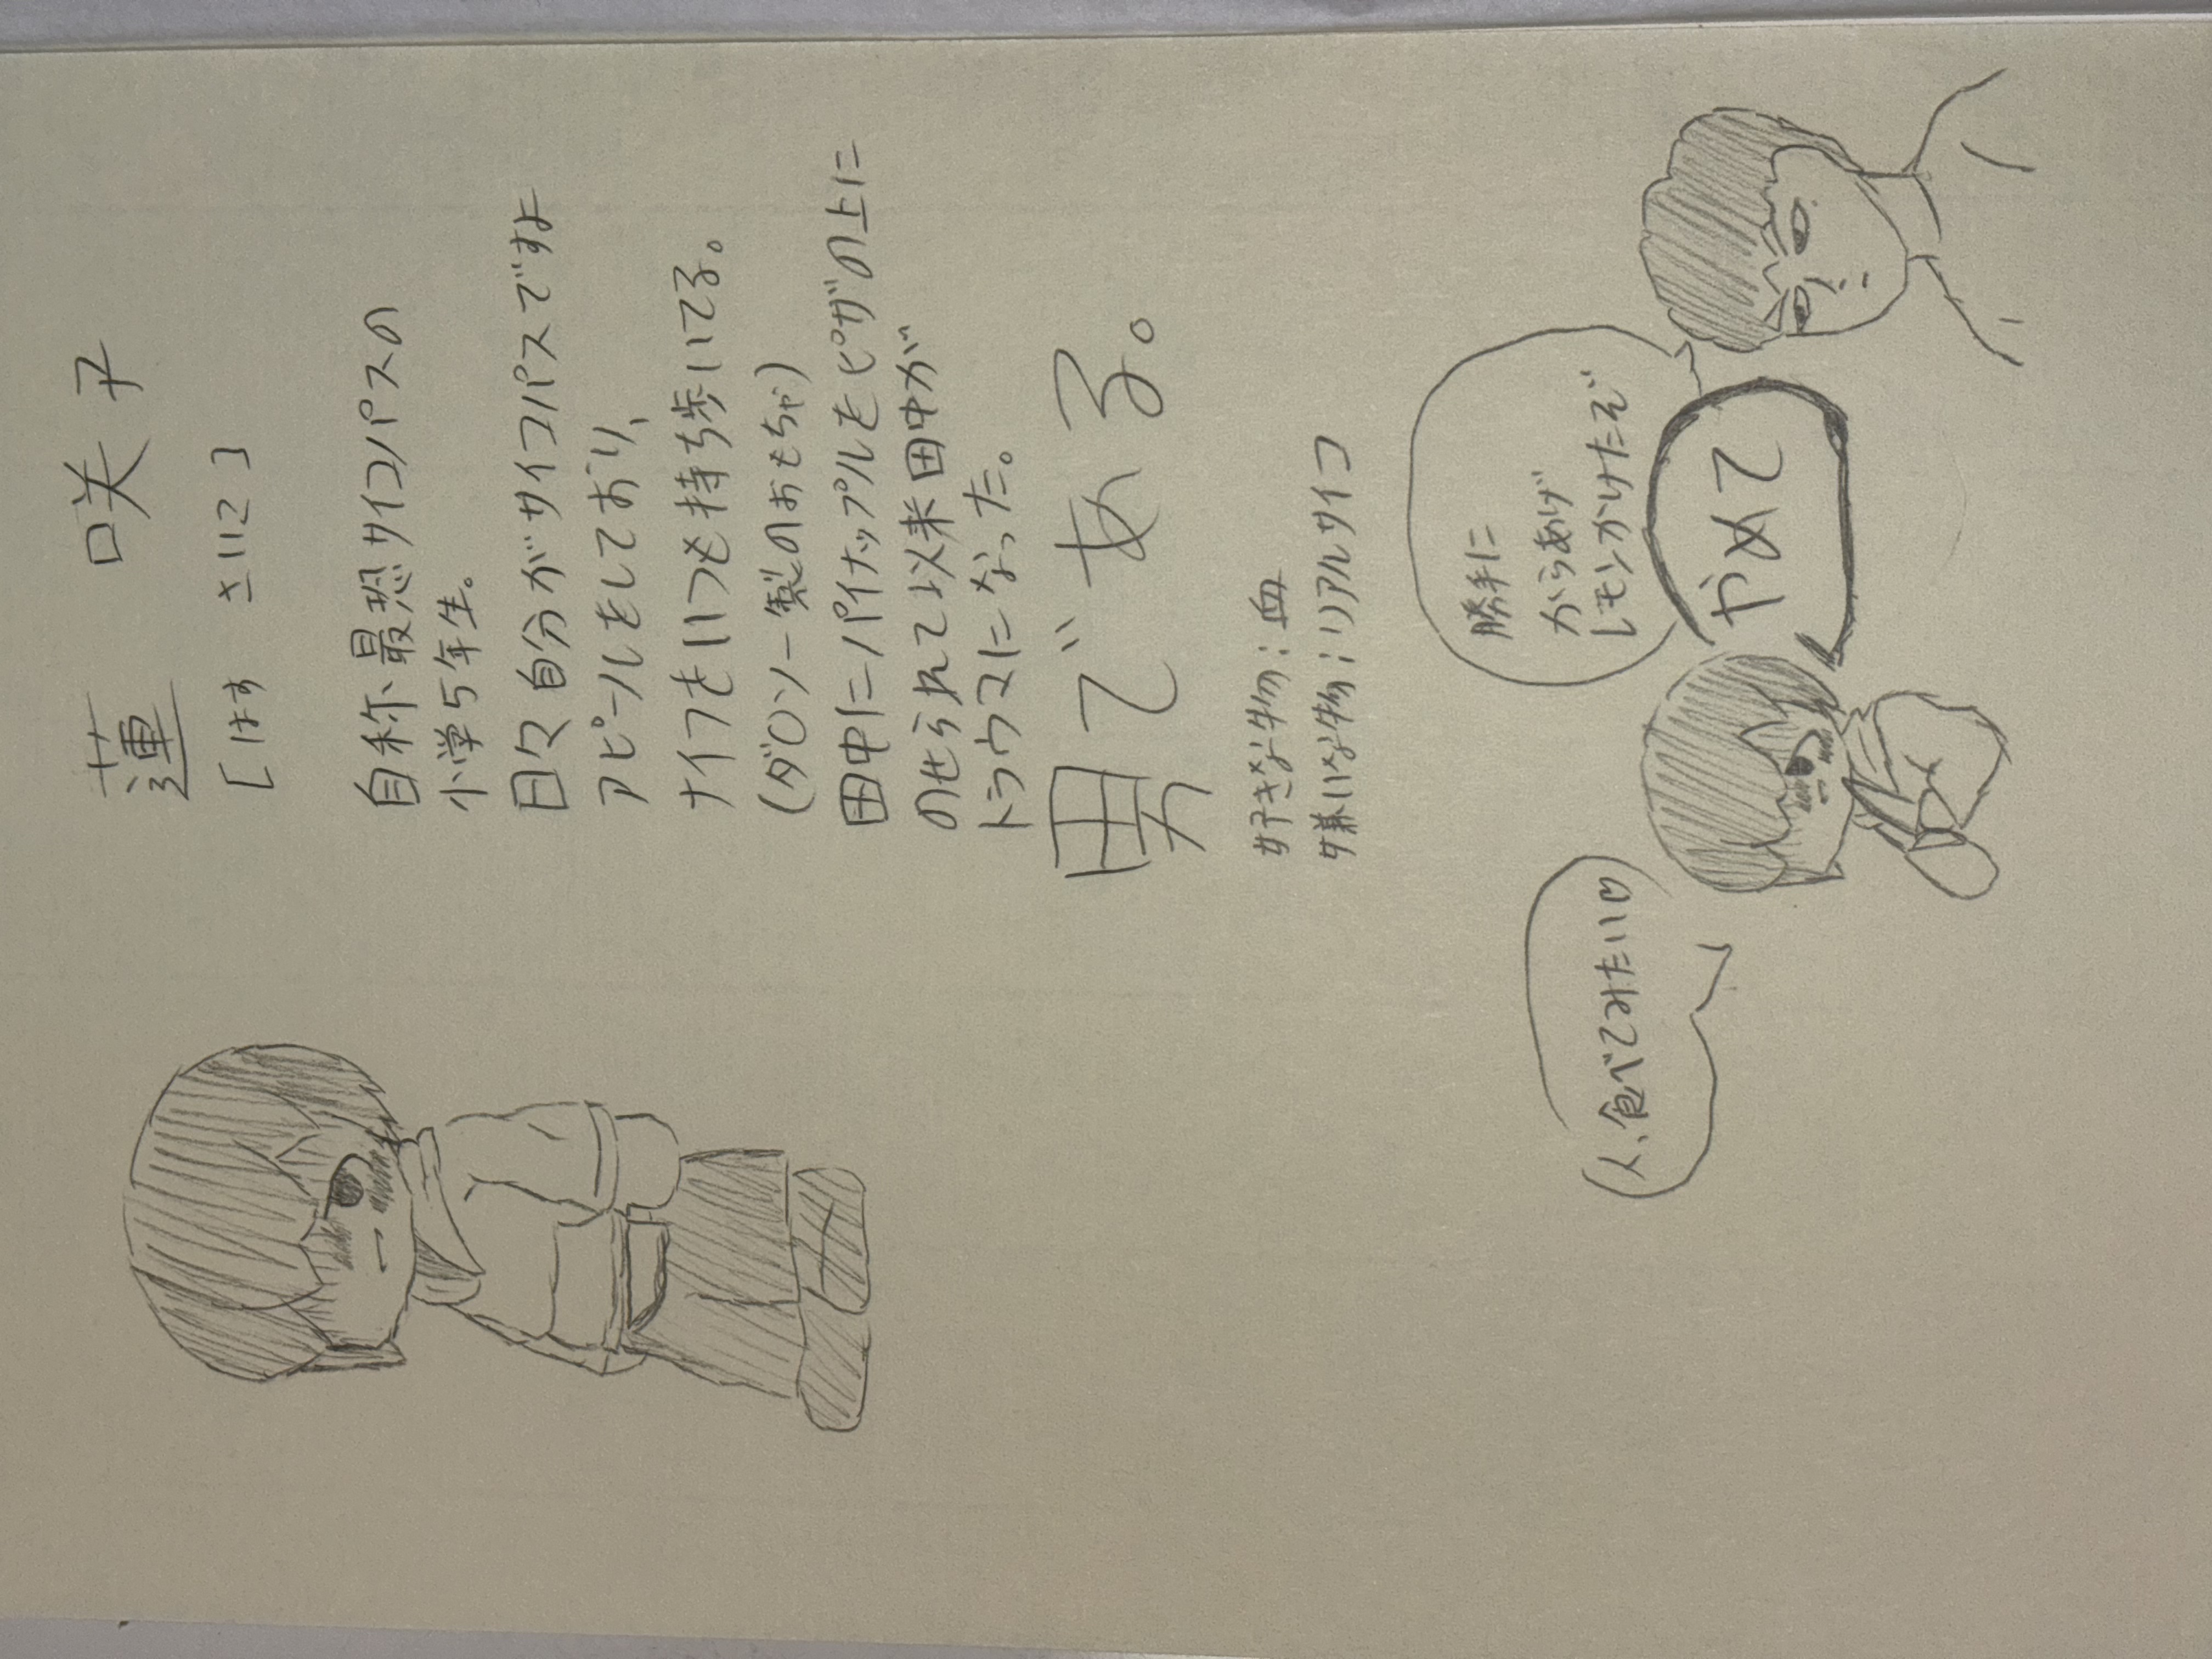 蓮 咲子
[はす さいこ]
自称、最恐サイコパスの
小学5年生。
日々自分がサイコパスですよ
アピールをしており、
ナイフをいつも持ち歩いてる。
(ダ○ソー製のおもちゃ)
田中にパイナップルをピザの上に
のせられて以来田中が
トラウマになった。
男である。
好きな物:血
嫌いな物:リアルサイコ
人、食べてみたいの
やめて
勝手に
からあげ
レモンかけたぞ